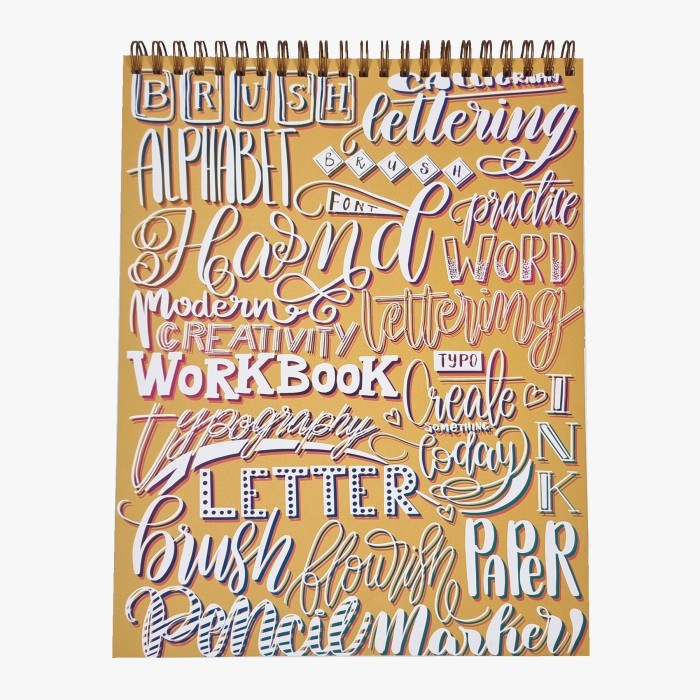 BRUSH
CALLIGRAPHY
lettering
ALPHABET
BRUSH
FONT
practice
Hand
WORD
Modern
lettering
CREATIVITY
WORKBOOK
TYPO
Create
SOMETHING
today
INK
typography
LETTER
brush
flourish
PAPER
Pencil
marker